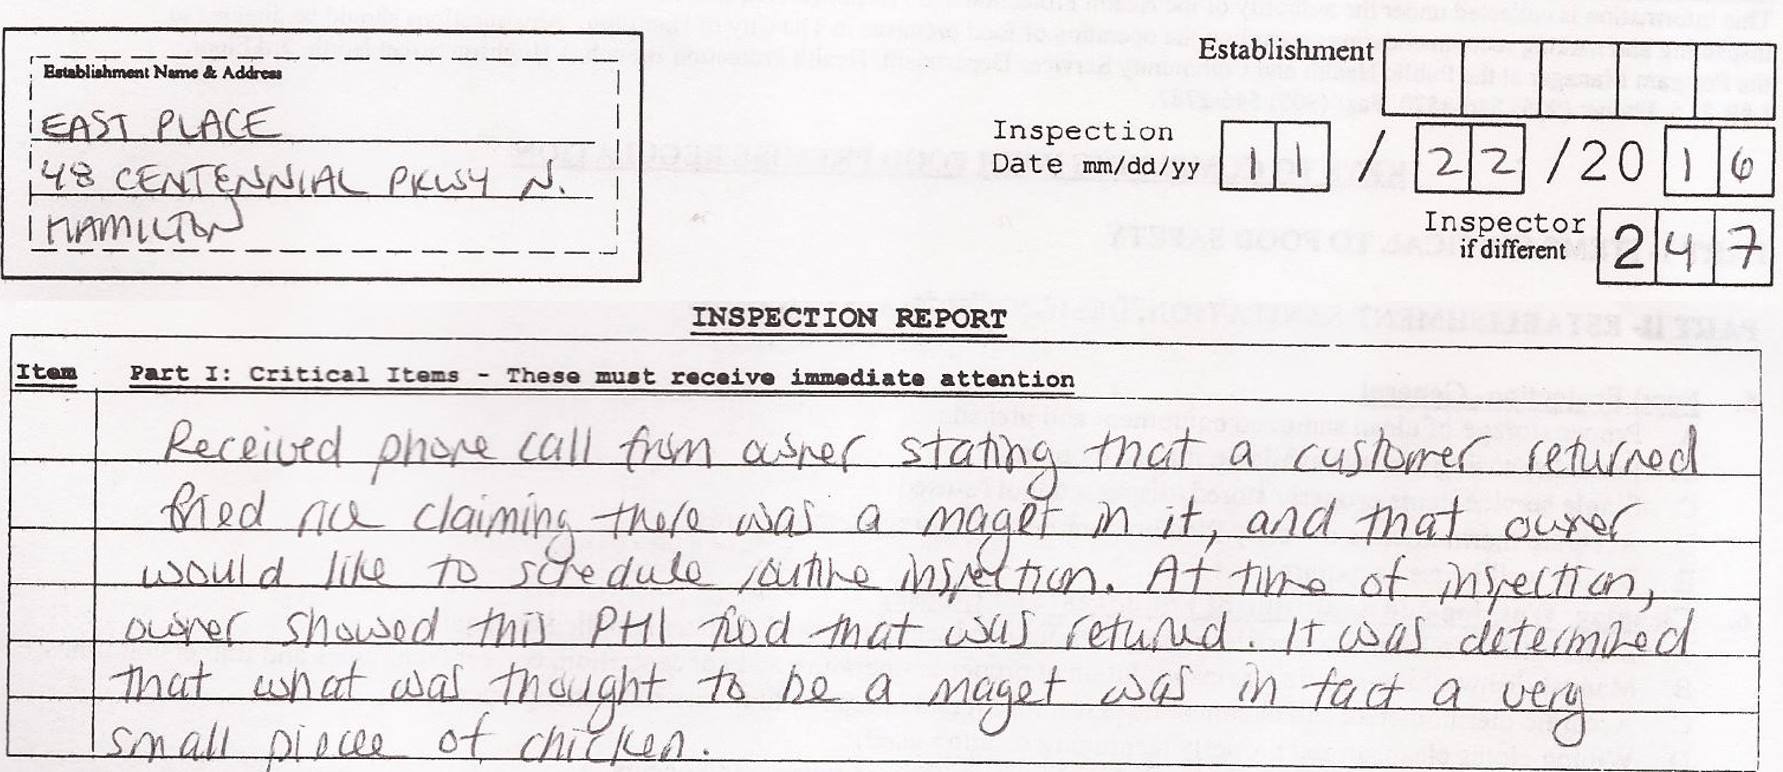 Establishment Name & Address
EAST PLACE
48 CENTENNIAL PKWY N.
HAMILTON
Establishment
Inspection
Date mm/dd/yy 11 / 22 / 20 16
Inspector
if different 247
INSPECTION REPORT
Item Part I: Critical Items - These must receive immediate attention
Received phone call from owner stating that a customer returned
fried rice claiming there was a maget in it, and that owner
would like to schedule routine inspection. At time of inspection,
owner showed this PHI food that was returned. It was determined
that what was thought to be a maget was in fact a very
small piece of chicken.